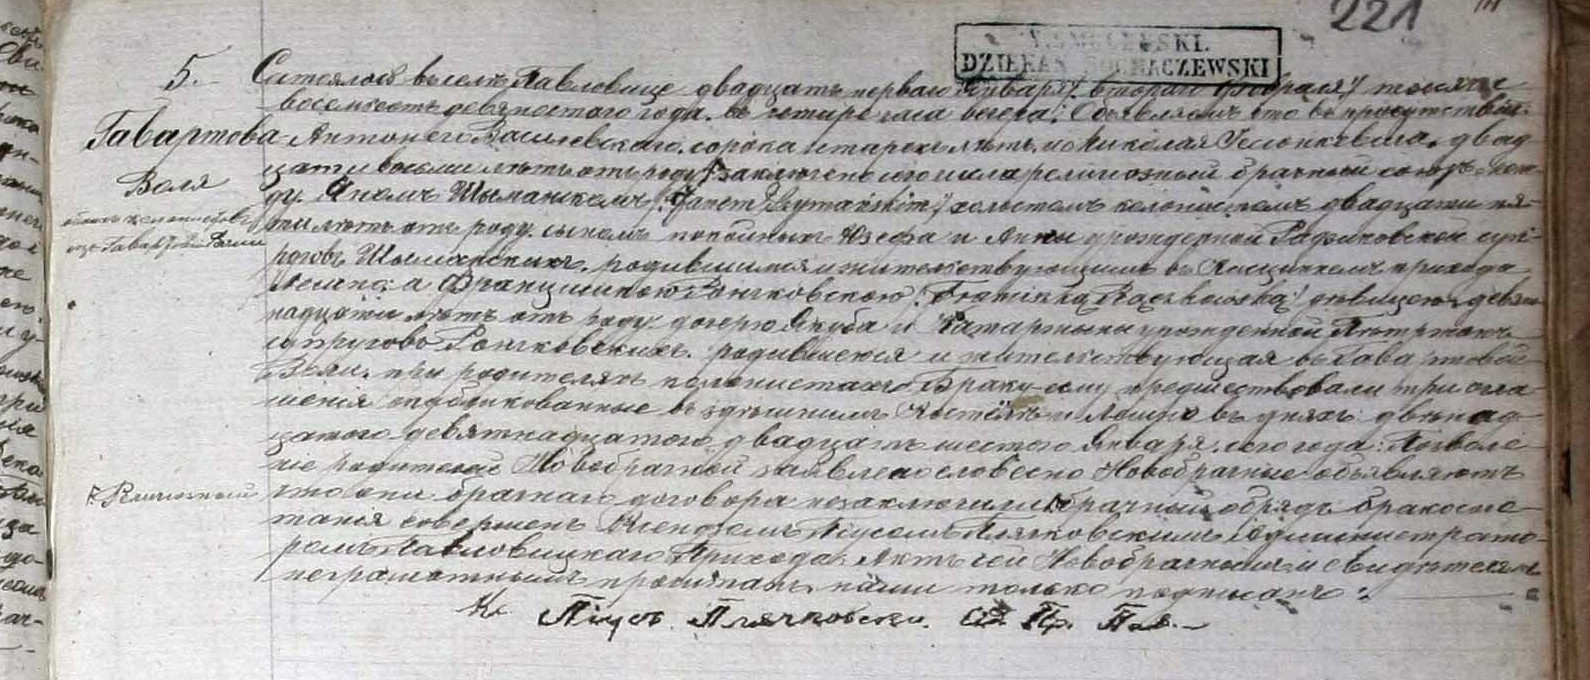 221
DZIEKAN SOCHACZEWSKI
5.
Состоялось въ селѣ Павловице двадцать перваго Января / втораго Февраля / тысяча
восемьсотъ девяностого года, въ четыре часа вечера: Объявляемъ что въ присутствіи
Гавартова Антонего Василевскаго, сорока лѣтъ, и Николая двад-
Воля
цати восьми лѣтъ отъ роду, заключенъ сего числа религіозный брачный союзъ
Шыманскемъ /: Szymański :/ холостомъ колонистомъ двадцати пя-
изъ Гавартовой Воли
ти лѣтъ отъ роду сыномъ покойныхъ Юзефа и Анны урожденной суп-
роговъ Шыманскихъ, родившимся и жительствующимъ въ прихода
а Францишкою Рончковскою / Rączkowska / дѣвицею, девят-
надцати лѣтъ отъ роду дочерью Якуба и Катаржыны урожденной
супруговъ Рончковскихъ, родившеюся и жительствующая въ Гавартовой
Воли, при родителяхъ колонистахъ. Браку сему предшествовали три огла-
шенія опубликованные въ здѣшнимъ Костёлѣ и въ дняхъ: двѣнад-
цатого девятнадцатого двадцать шестого Января сего года: Позволе-
ніе родителей Новобрачной заявлено словесно Новобрачные объявляютъ
что они брачнаго договора незаключили брачный обрядъ бракосоче-
танія совершенъ Ксендземъ Піусомъ Плячковскимъ Администрато-
ромъ Павловицкаго Прихода. Актъ сей Новобрачнымъ и свидѣтелямъ
неграмотнымъ прочитанъ, нами только подписанъ:
Кс. Піусъ Плячковски. Ад. Пр. Пав.